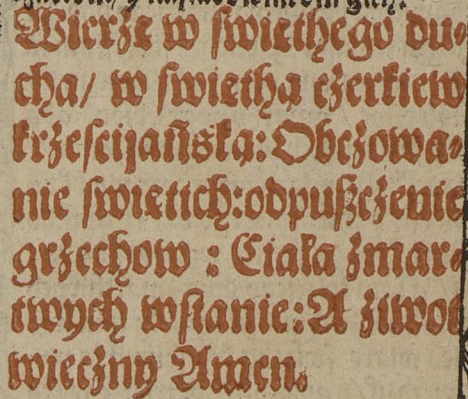 Wierzę w swięthego du⸗
cha/ w swięthą czerkiew
krzescijańską: Obczowa⸗
nie swiętich: odpuszczenie
grzechow : Ciała zmar⸗
twych wstanie: A ziwot
wieczny Amen.